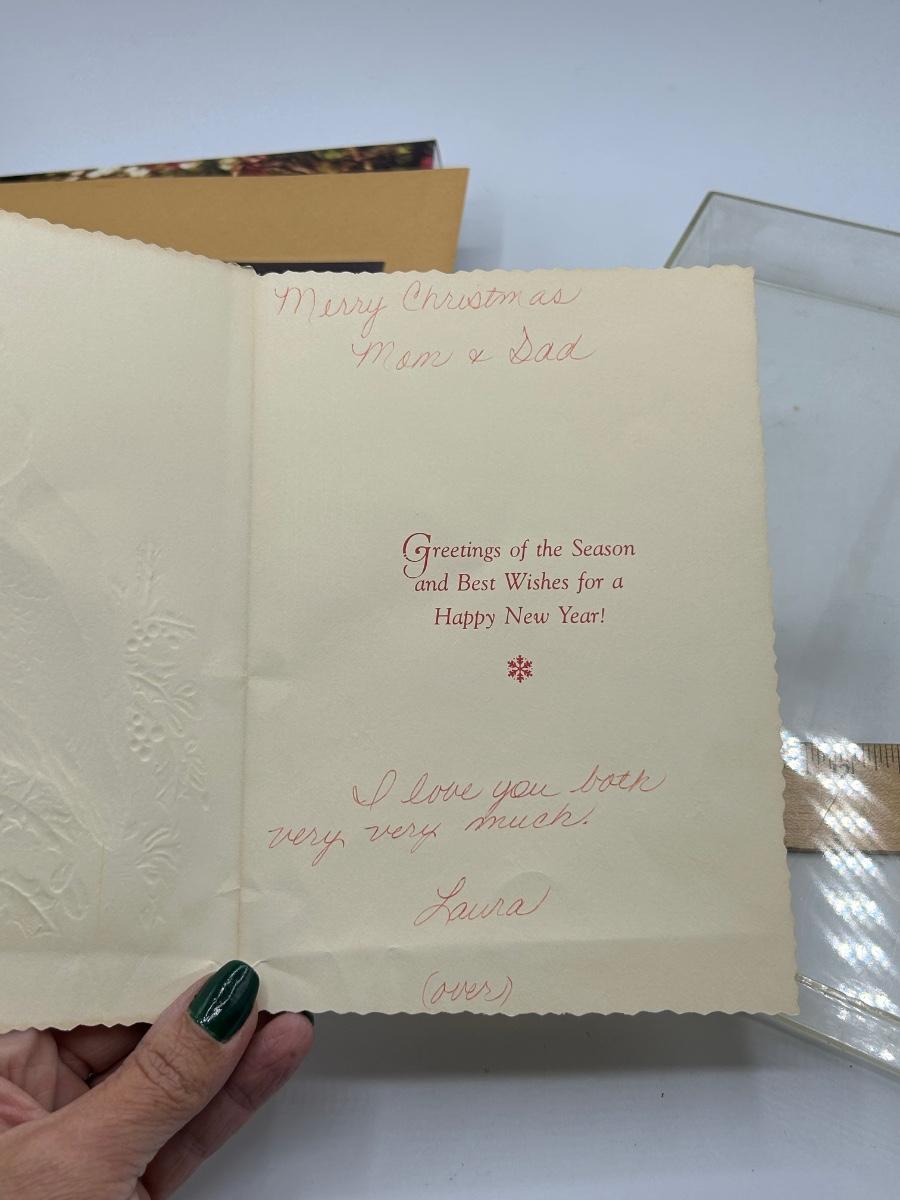 Merry Christmas
Mom & Dad
Greetings of the Season
and Best Wishes for a
Happy New Year!
I love you both
very very much.
Laura
(over)